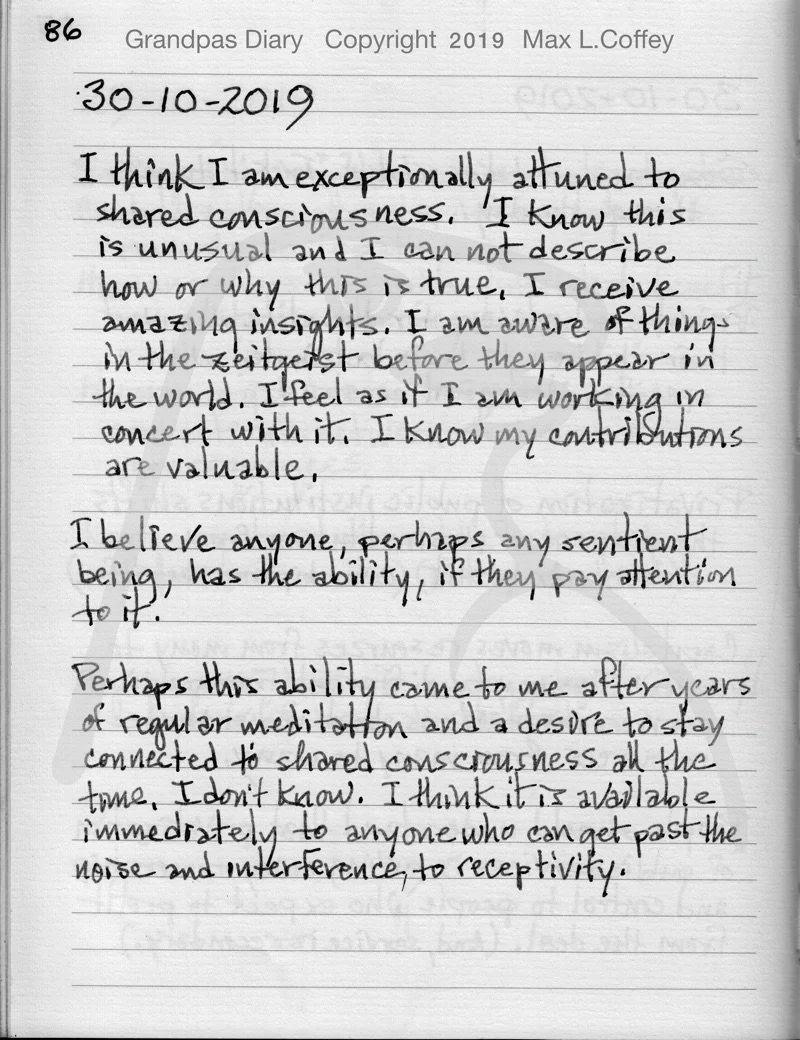 86
Grandpas Diary Copyright 2019 Max L.Coffey
30-10-2019
I think I am exceptionally attuned to
shared consciousness. I know this
is unusual and I can not describe
how or why this is true. I receive
amazing insights. I am aware of things
in the zeitgeist before they appear in
the world. I feel as if I am working in
concert with it. I know my contributions
are valuable.
I believe anyone, perhaps any sentient
being, has the ability, if they pay attention
to it.
Perhaps this ability came to me after years
of regular meditation and a desire to stay
connected to shared consciousness all the
time. I don't know. I think it is available
immediately to anyone who can get past the
noise and interference, to receptivity.